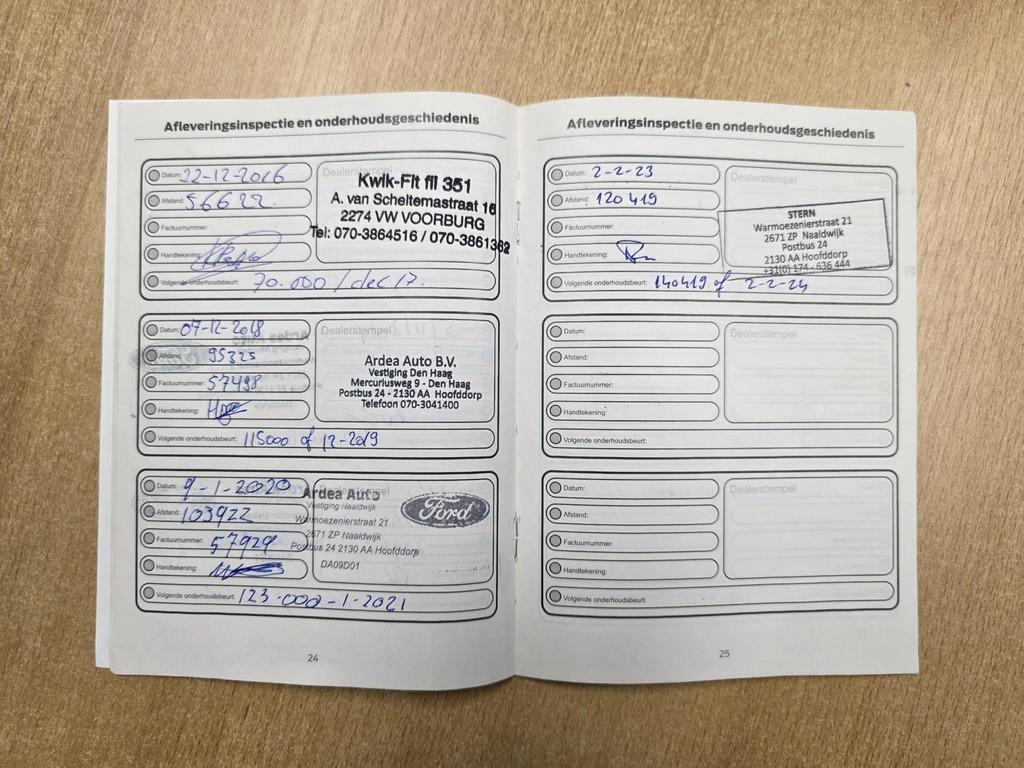 Afleveringsinspectie en onderhoudsgeschiedenis
Datum: 22-12-2016
Afstand: 56622
Factuurnummer:
Handtekening:
Volgende onderhoudsbeurt: 70.000 / dec 17.
Dealerstempel
Kwik-Fit fil 351
A. van Scheltemastraat 16
2274 VW VOORBURG
Tel: 070-3864516 / 070-3861362
Datum: 07-12-2018
Afstand: 95325
Factuurnummer: 57498
Handtekening:
Volgende onderhoudsbeurt: 115000 of 12-2019
Dealerstempel
Ardea Auto B.V.
Vestiging Den Haag
Mercuriusweg 9 - Den Haag
Postbus 24 - 2130 AA Hoofddorp
Telefoon 070-3041400
Datum: 9-1-2020
Afstand: 103922
Factuurnummer: 57929
Handtekening:
Volgende onderhoudsbeurt: 123.000 - 1-2021
Dealerstempel
Ardea Auto
Vestiging Naaldwijk
Warmoezenierstraat 21
2671 ZP Naaldwijk
Postbus 24 2130 AA Hoofddorp
DA09D01
Ford
24
Afleveringsinspectie en onderhoudsgeschiedenis
Datum: 2-2-23
Afstand: 120419
Factuurnummer:
Handtekening:
Volgende onderhoudsbeurt: 140419 of 2-2-24
Dealerstempel
STERN
Warmoezenierstraat 21
2671 ZP Naaldwijk
Postbus 24
2130 AA Hoofddorp
+31(0) 174 - 636 444
Datum:
Afstand:
Factuurnummer:
Handtekening:
Volgende onderhoudsbeurt:
Dealerstempel
Datum:
Afstand:
Factuurnummer:
Handtekening:
Volgende onderhoudsbeurt:
Dealerstempel
25